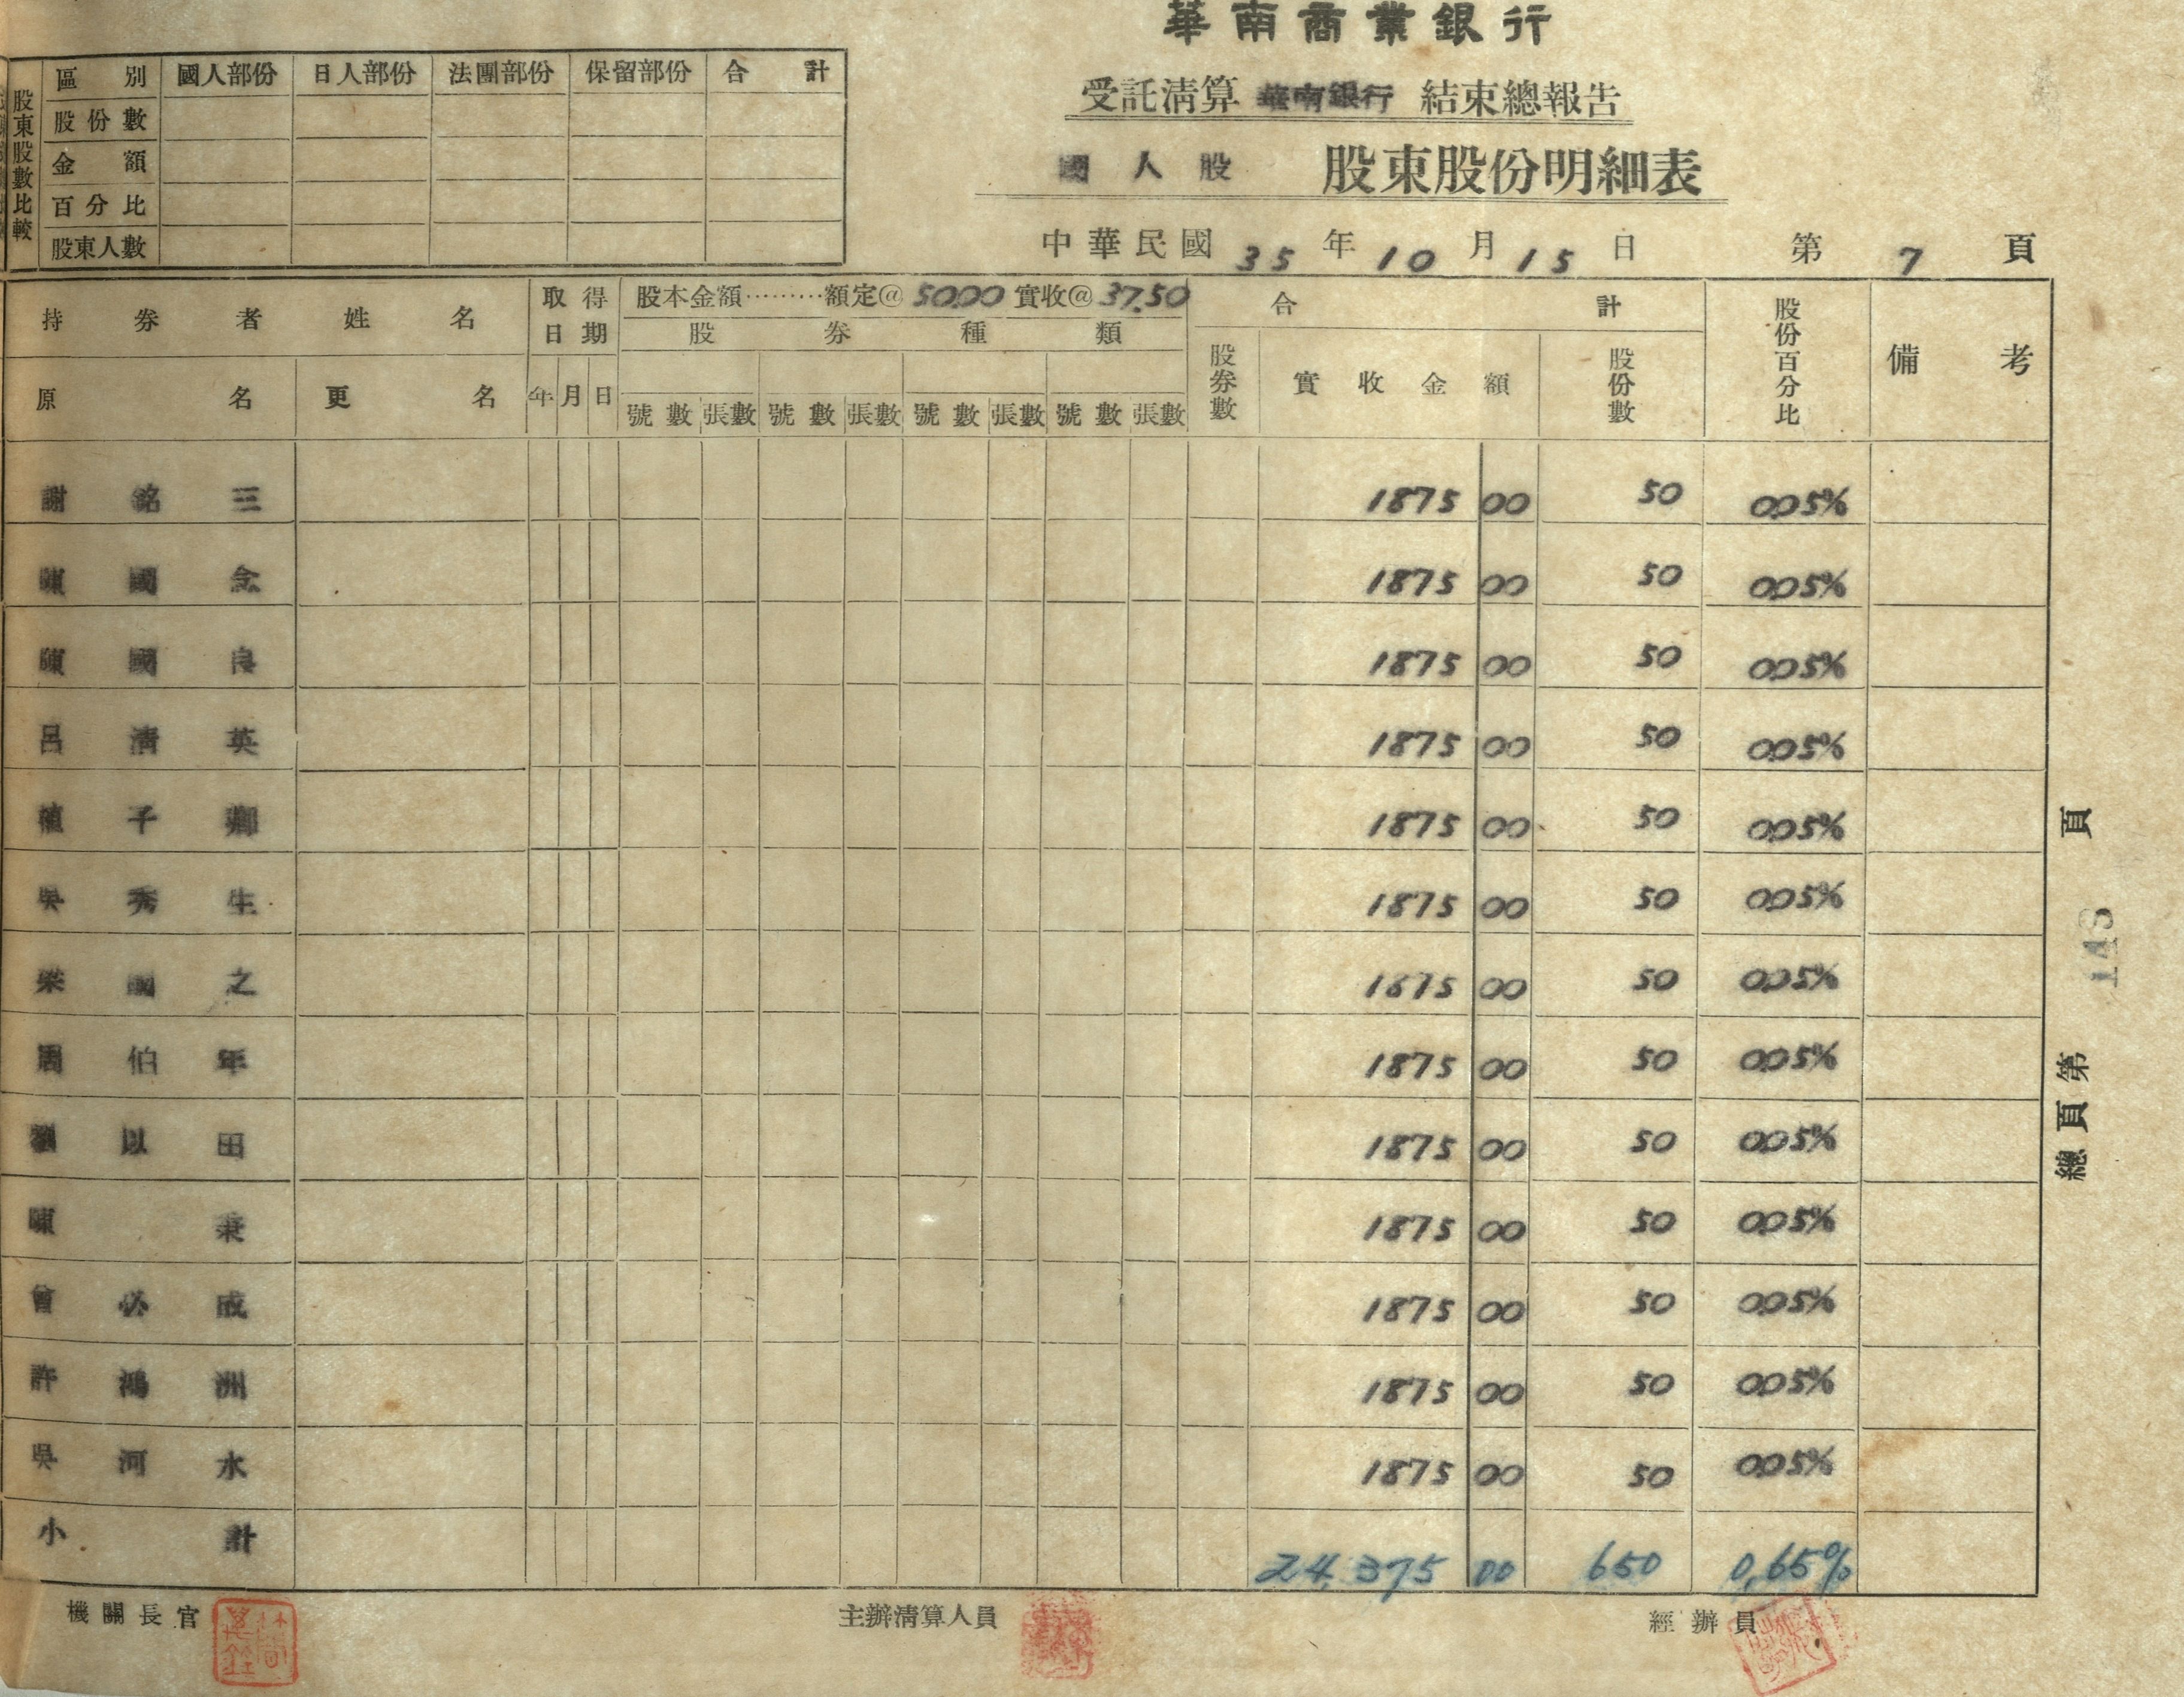 華南商業銀行
受託清算 華南銀行 結束總報告
國人股 股東股份明細表
中華民國 35 年 10 月 15 日 第 7 頁
股東股數比較
區別 國人部份 日人部份 法團部份 保留部份 合計
股份數
金額
百分比
股東人數
持券者姓名 取得日期 股本金額………額定@ 50.00 實收@ 37.50 合計 股份百分比 備考
股券種類
原名 更名 年 月 日 股券數 實收金額 股份數
號數 張數 號數 張數 號數 張數 號數 張數
謝銘三 1875 00 50 0.05%
陳國念 1875 00 50 0.05%
陳國良 1875 00 50 0.05%
呂清英 1875 00 50 0.05%
子卿 1875 00 50 0.05%
吳秀生 1875 00 50 0.05%
梁國之 1875 00 50 0.05%
周伯年 1875 00 50 0.05%
劉以田 1875 00 50 0.05%
陳秉 1875 00 50 0.05%
曾必成 1875 00 50 0.05%
許鴻洲 1875 00 50 0.05%
吳河水 1875 00 50 0.05%
小計 24,375 00 650 0.65%
機關長官 主辦清算人員 經辦員
總頁第 頁